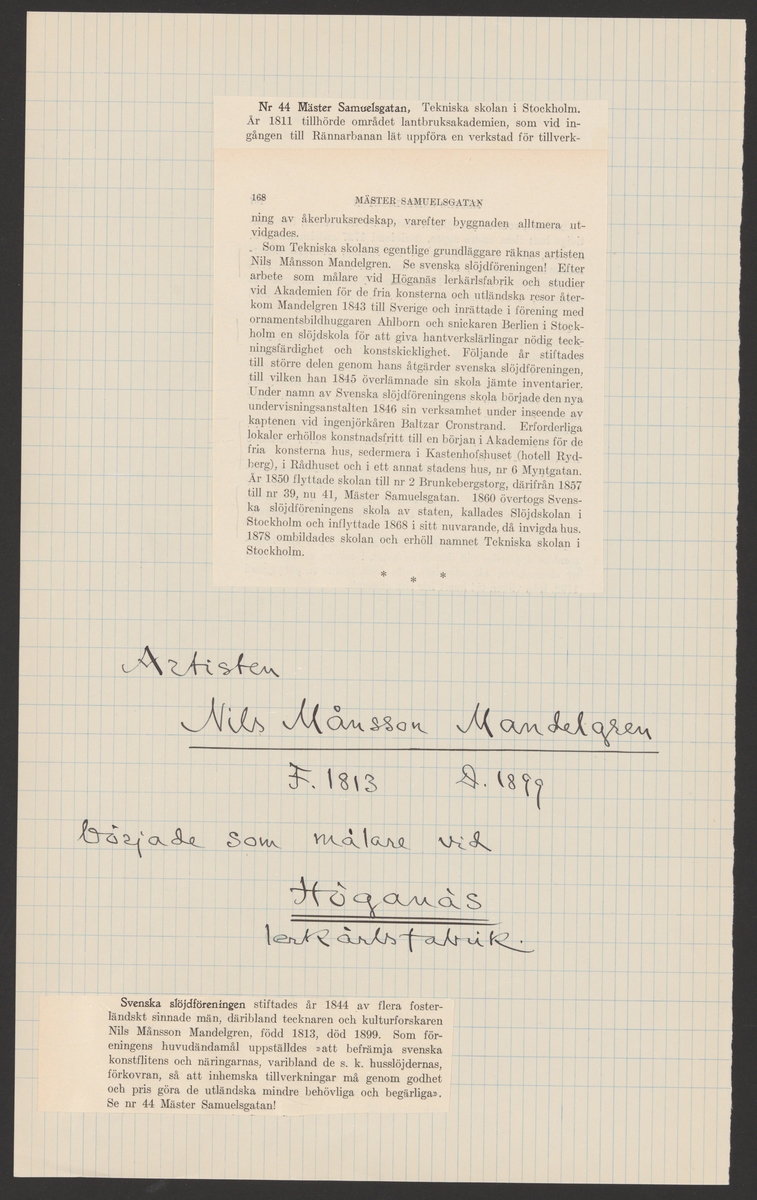 Nr 44 Mäster Samuelsgatan, Tekniska skolan i Stockholm.
År 1811 tillhörde området lantbruksakademien, som vid in-
gången till Rännarbanan lät uppföra en verkstad för tillverk-
168 MÄSTER SAMUELSGATAN
ning av åkerbruksredskap, varefter byggnaden alltmera ut-
vidgades.
Som Tekniska skolans egentlige grundläggare räknas artisten
Nils Månsson Mandelgren. Se svenska slöjdföreningen! Efter
arbete som målare vid Höganäs lerkärlsfabrik och studier
vid Akademien för de fria konsterna och utländska resor åter-
kom Mandelgren 1843 till Sverige och inrättade i förening med
ornamentsbildhuggaren Ahlborn och snickaren Berlien i Stock-
holm en slöjdskola för att giva hantverkslärlingar nödig teck-
ningsfärdighet och konstskicklighet. Följande år stiftades
till större delen genom hans åtgärder svenska slöjdföreningen,
till vilken han 1845 överlämnade sin skola jämte inventarier.
Under namn av Svenska slöjdföreningens skola började den nya
undervisningsanstalten 1846 sin verksamhet under inseende av
kaptenen vid ingenjörkåren Baltzar Cronstrand. Erforderliga
lokaler erhöllos konstnadsfritt till en början i Akademiens för de
fria konsterna hus, sedermera i Kastenhofshuset (hotell Ryd-
berg), i Rådhuset och i ett annat stadens hus, nr 6 Myntgatan.
År 1850 flyttade skolan till nr 2 Brunkebergstorg, därifrån 1857
till nr 39, nu 41, Mäster Samuelsgatan. 1860 övertogs Svens-
ka slöjdföreningens skola av staten, kallades Slöjdskolan i
Stockholm och inflyttade 1868 i sitt nuvarande, då invigda hus.
1878 ombildades skolan och erhöll namnet Tekniska skolan i
Stockholm.
* * *
Artisten
Nils Månsson Mandelgren
F. 1813 D. 1899
började som målare vid
Höganäs
lerkärlsfabrik.
Svenska slöjdföreningen stiftades år 1844 av flera foster-
ländskt sinnade män, däribland tecknaren och kulturforskaren
Nils Månsson Mandelgren, född 1813, död 1899. Som för-
eningens huvudändamål uppställdes »att befrämja svenska
konstflitens och näringarnas, varibland de s. k. husslöjdernas,
förkovran, så att inhemska tillverkningar må genom godhet
och pris göra de utländska mindre behövliga och begärliga».
Se nr 44 Mäster Samuelsgatan!